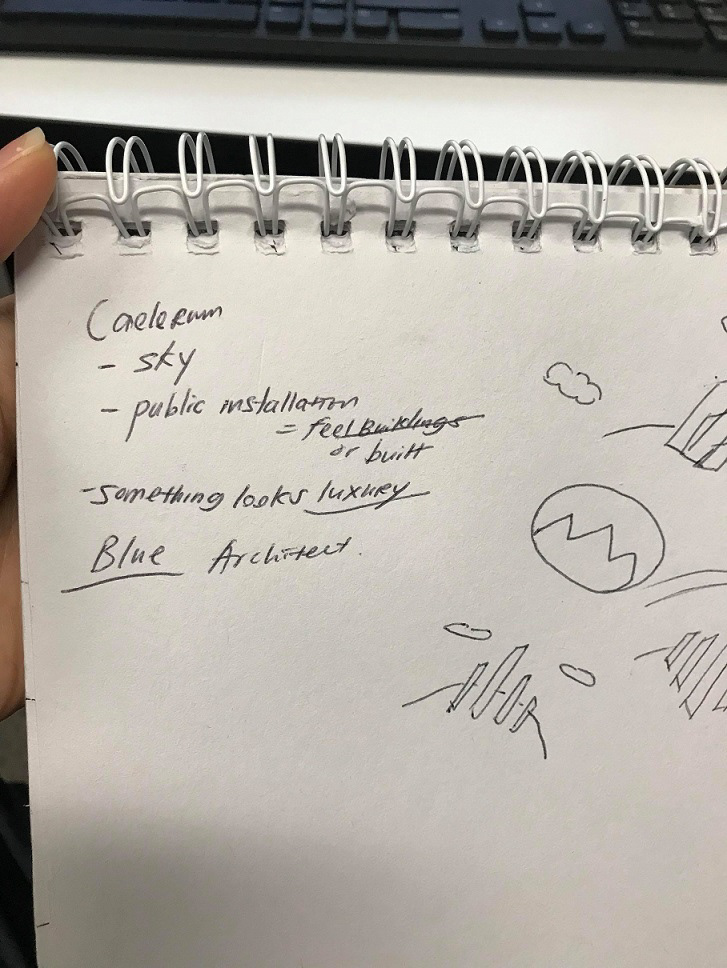 Caelerum
- sky
- public installation
= feel Buildings
or built
- something looks luxury
Blue Architect.